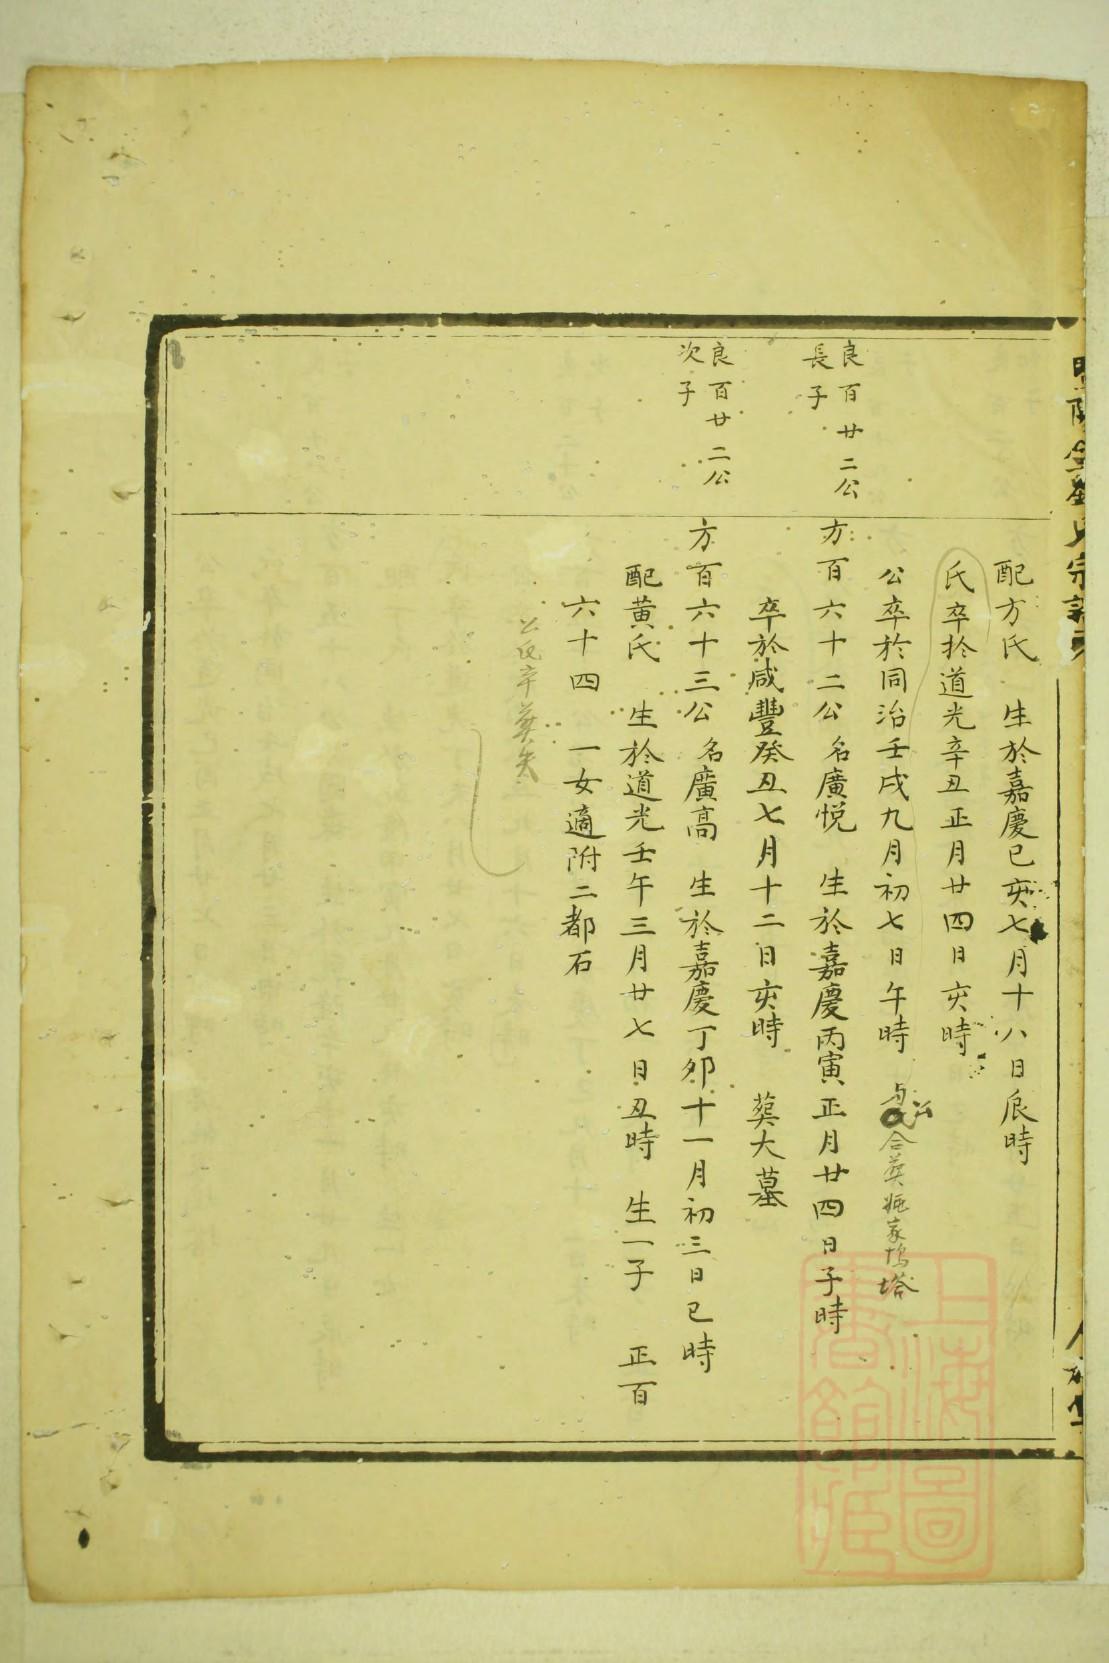 配方氏 生於嘉慶己亥七月十八日辰時
氏卒於道光辛丑正月廿四日亥時
公卒於同治壬戌九月初七日午時 与公合葬 塔
良百廿二公
長子
方百六十二公 名廣悦 生於嘉慶丙寅正月廿四日子時
卒於咸豐癸丑七月十二日亥時 葬大墓
良百廿二公
次子
方百六十三公 名廣高 生於嘉慶丁卯十一月初三日巳時
配黄氏 生於道光壬午三月廿七日丑時 生一子 正百
六十四 一女適附二都石
公氏卒葬失
上海圖
書館藏